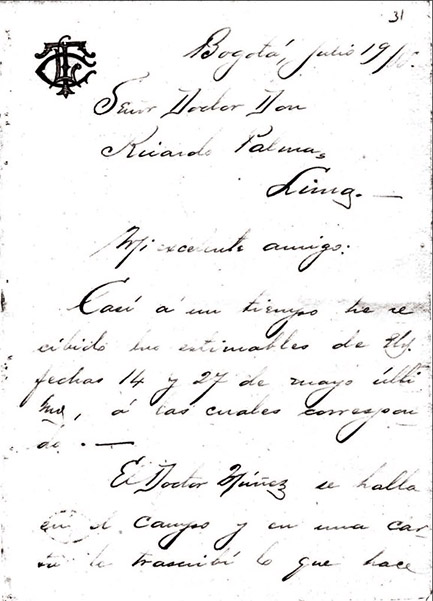 31
Bogotá, Julio 19/
Señor Doctor Don
Ricardo Palma,
Lima.—
Mi excelente amigo:
Casi á un tiempo he re
cibido las estimables de Ud.
fechas 14 y 27 de mayo últi
mo, á las cuales correspon
do.—
El Doctor Núñez se halla
en el campo y en una car-
ta le trascribí lo que hace